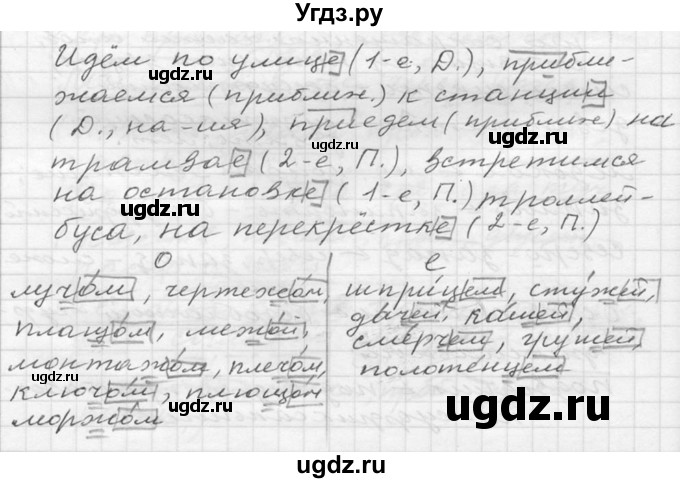 Угдз.ру
Идём по улице (1-е, Д.), прибли-
жаемся (приближ.) к станции
(Д., на -ия), приедем (приближ) на
трамвае (2-е, П.), встретимся
на остановке (1-е, П.) троллей-
буса, на перекрёстке (2-е, П.)
о
лучом, чертежом,
плащом, межой,
монтажом, плечом,
ключом, плющом
моржом
е
шприцем, стужей,
дачей, кашей,
смерчем, грушей,
полотенцем
ugdz.ru
ugdz.ru
ugdz.ru
ugdz.ru
ugdz.ru
ugdz.ru
ugdz.ru
ugdz.ru
ugdz.ru